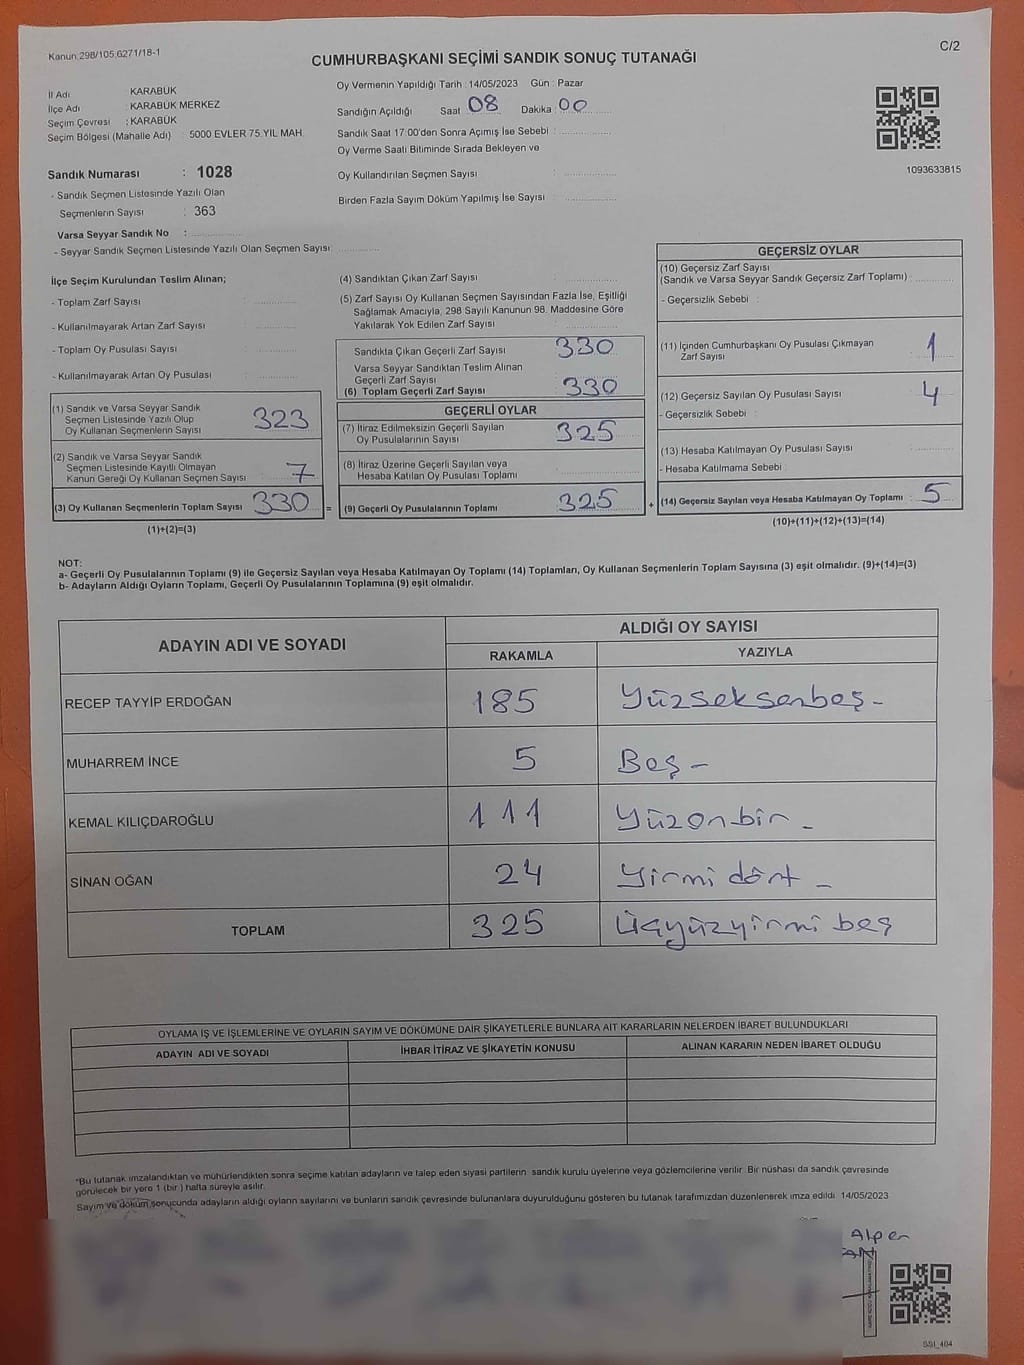 Kanun:298/105,6271/18-1
C/2
CUMHURBAŞKANI SEÇİMİ SANDIK SONUÇ TUTANAĞI
İl Adı : KARABÜK
İlçe Adı : KARABÜK MERKEZ
Seçim Çevresi : KARABÜK
Seçim Bölgesi (Mahalle Adı) : 5000 EVLER 75.YIL MAH.
Oy Vermenin Yapıldığı Tarih : 14/05/2023 Gün : Pazar
Sandığın Açıldığı Saat 08 Dakika 00
Sandık Saat 17:00'den Sonra Açımış İse Sebebi :
Oy Verme Saati Bitiminde Sırada Bekleyen ve
Oy Kullandırılan Seçmen Sayısı :
Birden Fazla Sayım Döküm Yapılmış İse Sayısı :
1093633815
Sandık Numarası : 1028
- Sandık Seçmen Listesinde Yazılı Olan
Seçmenlerin Sayısı : 363
Varsa Seyyar Sandık No :
- Seyyar Sandık Seçmen Listesinde Yazılı Olan Seçmen Sayısı:
İlçe Seçim Kurulundan Teslim Alınan;
- Toplam Zarf Sayısı :
- Kullanılmayarak Artan Zarf Sayısı :
- Toplam Oy Pusulası Sayısı :
- Kullanılmayarak Artan Oy Pusulası :
(1) Sandık ve Varsa Seyyar Sandık
Seçmen Listesinde Yazılı Olup
Oy Kullanan Seçmenlerin Sayısı : 323
(2) Sandık ve Varsa Seyyar Sandık
Seçmen Listesinde Kayıtlı Olmayan
Kanun Gereği Oy Kullanan Seçmen Sayısı : 7
(3) Oy Kullanan Seçmenlerin Toplam Sayısı : 330
(1)+(2)=(3)
=
(4) Sandıktan Çıkan Zarf Sayısı :
(5) Zarf Sayısı Oy Kullanan Seçmen Sayısından Fazla İse, Eşitliği
Sağlamak Amacıyla, 298 Sayılı Kanunun 98. Maddesine Göre
Yakılarak Yok Edilen Zarf Sayısı :
Sandıkta Çıkan Geçerli Zarf Sayısı : 330
Varsa Seyyar Sandıktan Teslim Alınan
Geçerli Zarf Sayısı :
(6) Toplam Geçerli Zarf Sayısı : 330
GEÇERLİ OYLAR
(7) İtiraz Edilmeksizin Geçerli Sayılan
Oy Pusulalarının Sayısı : 325
(8) İtiraz Üzerine Geçerli Sayılan veya
Hesaba Katılan Oy Pusulası Toplamı :
(9) Geçerli Oy Pusulalarının Toplamı : 325
+
GEÇERSİZ OYLAR
(10) Geçersiz Zarf Sayısı
(Sandık ve Varsa Seyyar Sandık Geçersiz Zarf Toplamı) :
- Geçersizlik Sebebi :
(11) İçinden Cumhurbaşkanı Oy Pusulası Çıkmayan
Zarf Sayısı : 1
(12) Geçersiz Sayılan Oy Pusulası Sayısı : 4
- Geçersizlik Sebebi :
(13) Hesaba Katılmayan Oy Pusulası Sayısı :
- Hesaba Katılmama Sebebi :
(14) Geçersiz Sayılan veya Hesaba Katılmayan Oy Toplamı : 5
(10)+(11)+(12)+(13)=(14)
NOT:
a- Geçerli Oy Pusulalarının Toplamı (9) ile Geçersiz Sayılan veya Hesaba Katılmayan Oy Toplamı (14) Toplamları, Oy Kullanan Seçmenlerin Toplam Sayısına (3) eşit olmalıdır. (9)+(14)=(3)
b- Adayların Aldığı Oyların Toplamı, Geçerli Oy Pusulalarının Toplamına (9) eşit olmalıdır.
ADAYIN ADI VE SOYADI
ALDIĞI OY SAYISI
RAKAMLA YAZIYLA
RECEP TAYYİP ERDOĞAN 185 Yüzseksenbeş -
MUHARREM İNCE 5 Beş -
KEMAL KILIÇDAROĞLU 111 Yüzonbir -
SİNAN OĞAN 24 Yirmi dört -
TOPLAM 325 Üçyüzyirmi beş
OYLAMA İŞ VE İŞLEMLERİNE VE OYLARIN SAYIM VE DÖKÜMÜNE DAİR ŞİKAYETLERLE BUNLARA AİT KARARLARIN NELERDEN İBARET BULUNDUKLARI
ADAYIN ADI VE SOYADI İHBAR İTİRAZ VE ŞİKAYETİN KONUSU ALINAN KARARIN NEDEN İBARET OLDUĞU
*Bu tutanak imzalandıktan ve mühürlendikten sonra seçime katılan adayların ve talep eden siyasi partilerin sandık kurulu üyelerine veya gözlemcilerine verilir. Bir nüshası da sandık çevresinde
görülecek bir yere 1 (bir ) hafta süreyle asılır.
Sayım ve döküm sonucunda adayların aldığı oyların sayılarını ve bunların sandık çevresinde bulunanlara duyurulduğunu gösteren bu tutanak tarafımızdan düzenlenerek imza edildi. 14/05/2023
Alper
SSI_404